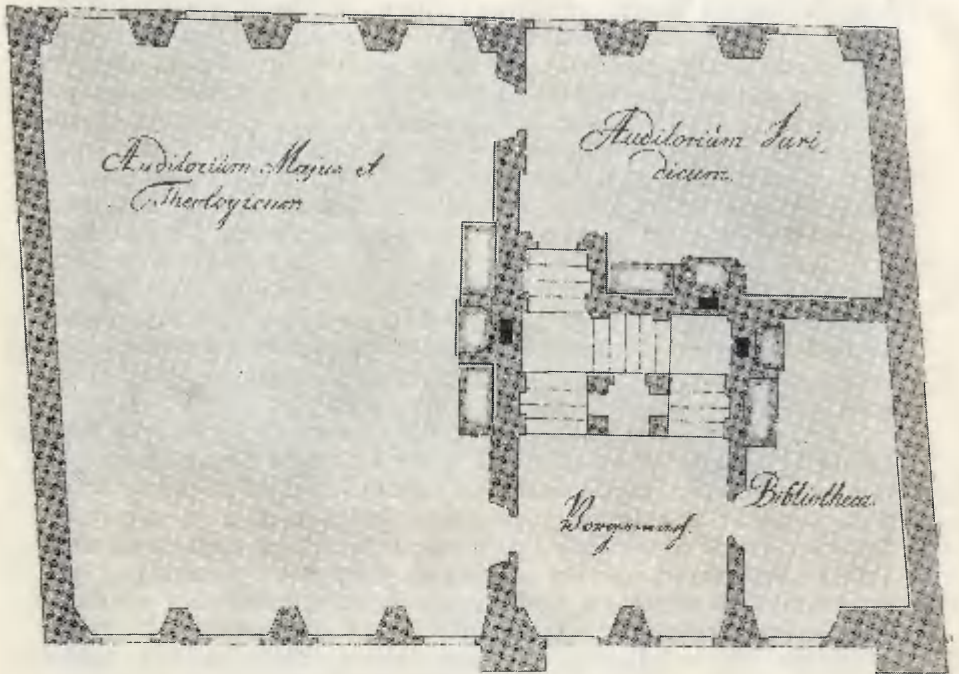 Auditorium Majus et
Theologicum
Auditorium Juri-
dicum.
Vorgemach.
Bibliotheca.